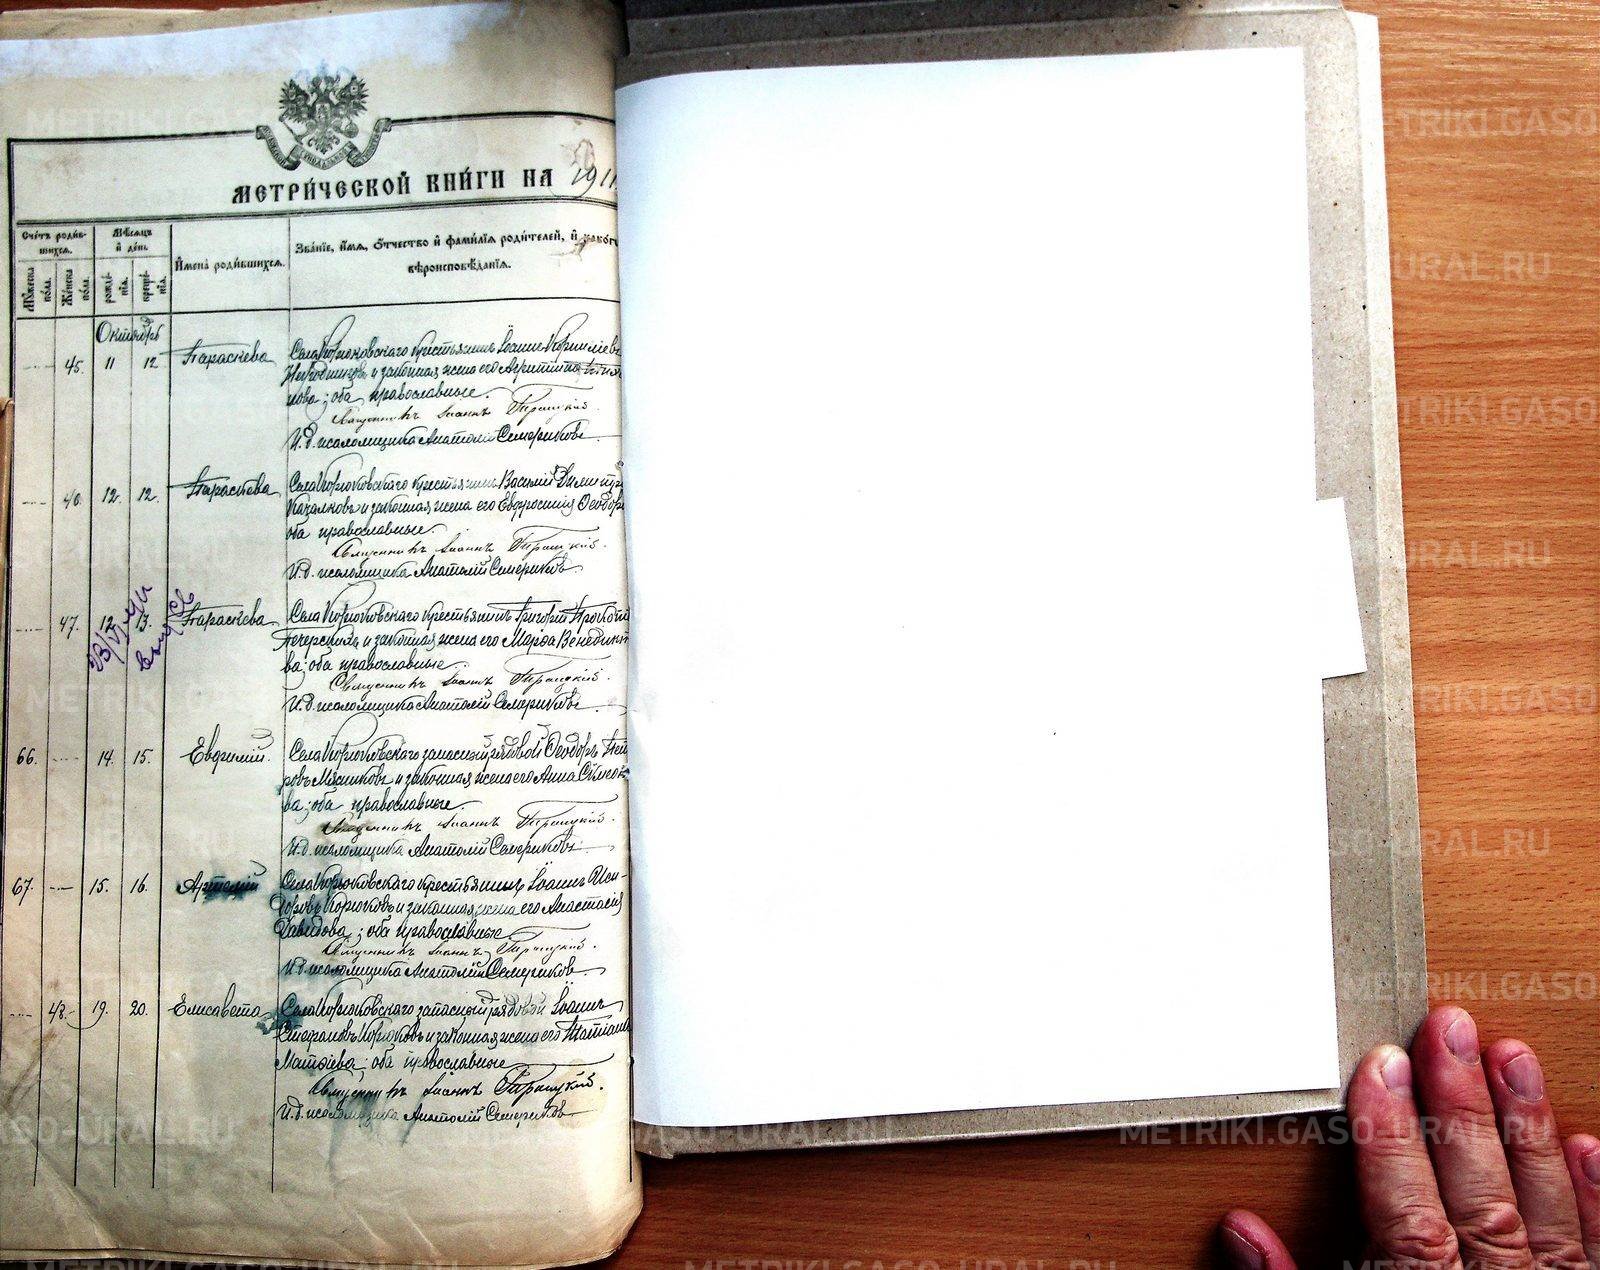 МЕТРИЧЕСКОЙ КНИГИ НА 1911
Счетъ родив-
шихся.
Мужеска пола.
Женска пола.
Мѣсяцъ и день
рожде-
нія.
креще-
нія.
Имена родившихся.
Званіе, имя, отчество и фамилія родителей, и какого
вѣроисповѣданія.
Октябрь
45. 11 12 Параскева
Села Корюковскаго крестьянинъ Іоаннъ Корниліевъ
и законная жена его
оба православные.
Священникъ Іоаннъ Троицкій.
И.д. псаломщика Анатолій Семериковъ
46. 12. 12. Параскева
Села Корюковскаго крестьянинъ Василій Димитр
и законная жена его Евфросинія Ѳеодор
оба православные.
Священникъ Іоаннъ Троицкій.
И.д. псаломщика Анатолій Семериковъ.
47. 12. 13. Параскева
Села Корюковскаго крестьянинъ Григорій Прокопі
и законная жена его Марѳа Венедикт
ва; оба православные.
Священникъ Іоаннъ Троицкій.
И.д. псаломщика Анатолій Семериковъ.
66. 14. 15. Евфимій.
Села Корюковскаго запасный рядовой Ѳеодоръ Пет
ровъ Мясниковъ и законная жена его Анна Симео
ва; оба православные.
Священникъ Іоаннъ Троицкій.
И.д. псаломщика Анатолій Семериковъ.
67. 15. 16. Артемій
Села Корюковскаго крестьянинъ Іоаннъ Иси-
доровъ Корюковъ и законная жена его Анастасія
Давидова; оба православные
Священникъ Іоаннъ Троицкій.
И.д. псаломщика Анатолій Семериковъ
48. 19. 20. Елисавета
Села Корюковскаго запасный рядовой Іоаннъ
Стефановъ Корюковъ и законная жена его Татіана
Матѳіева; оба православные
Священникъ Іоаннъ Троицкій.
И.д. псаломщика Анатолій Семериковъ
METRIKI.GASO-URAL.RU